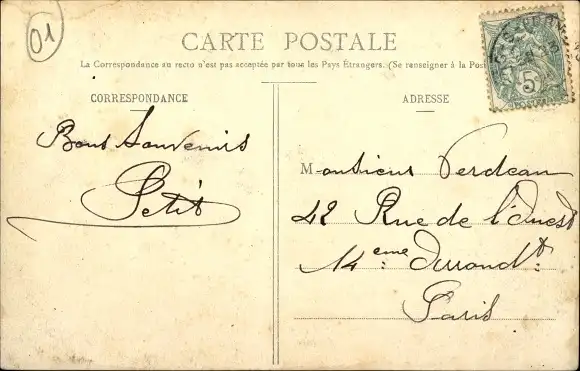 01
CARTE POSTALE
La Correspondance au recto n'est pas acceptée par tous les Pays Étrangers. (Se renseigner à la Pos
CORRESPONDANCE
ADRESSE
Bons Souvenirs
Petit
Monsieur Verdeau
42 Rue de l'Ouest
14eme Arrondt
Paris
5